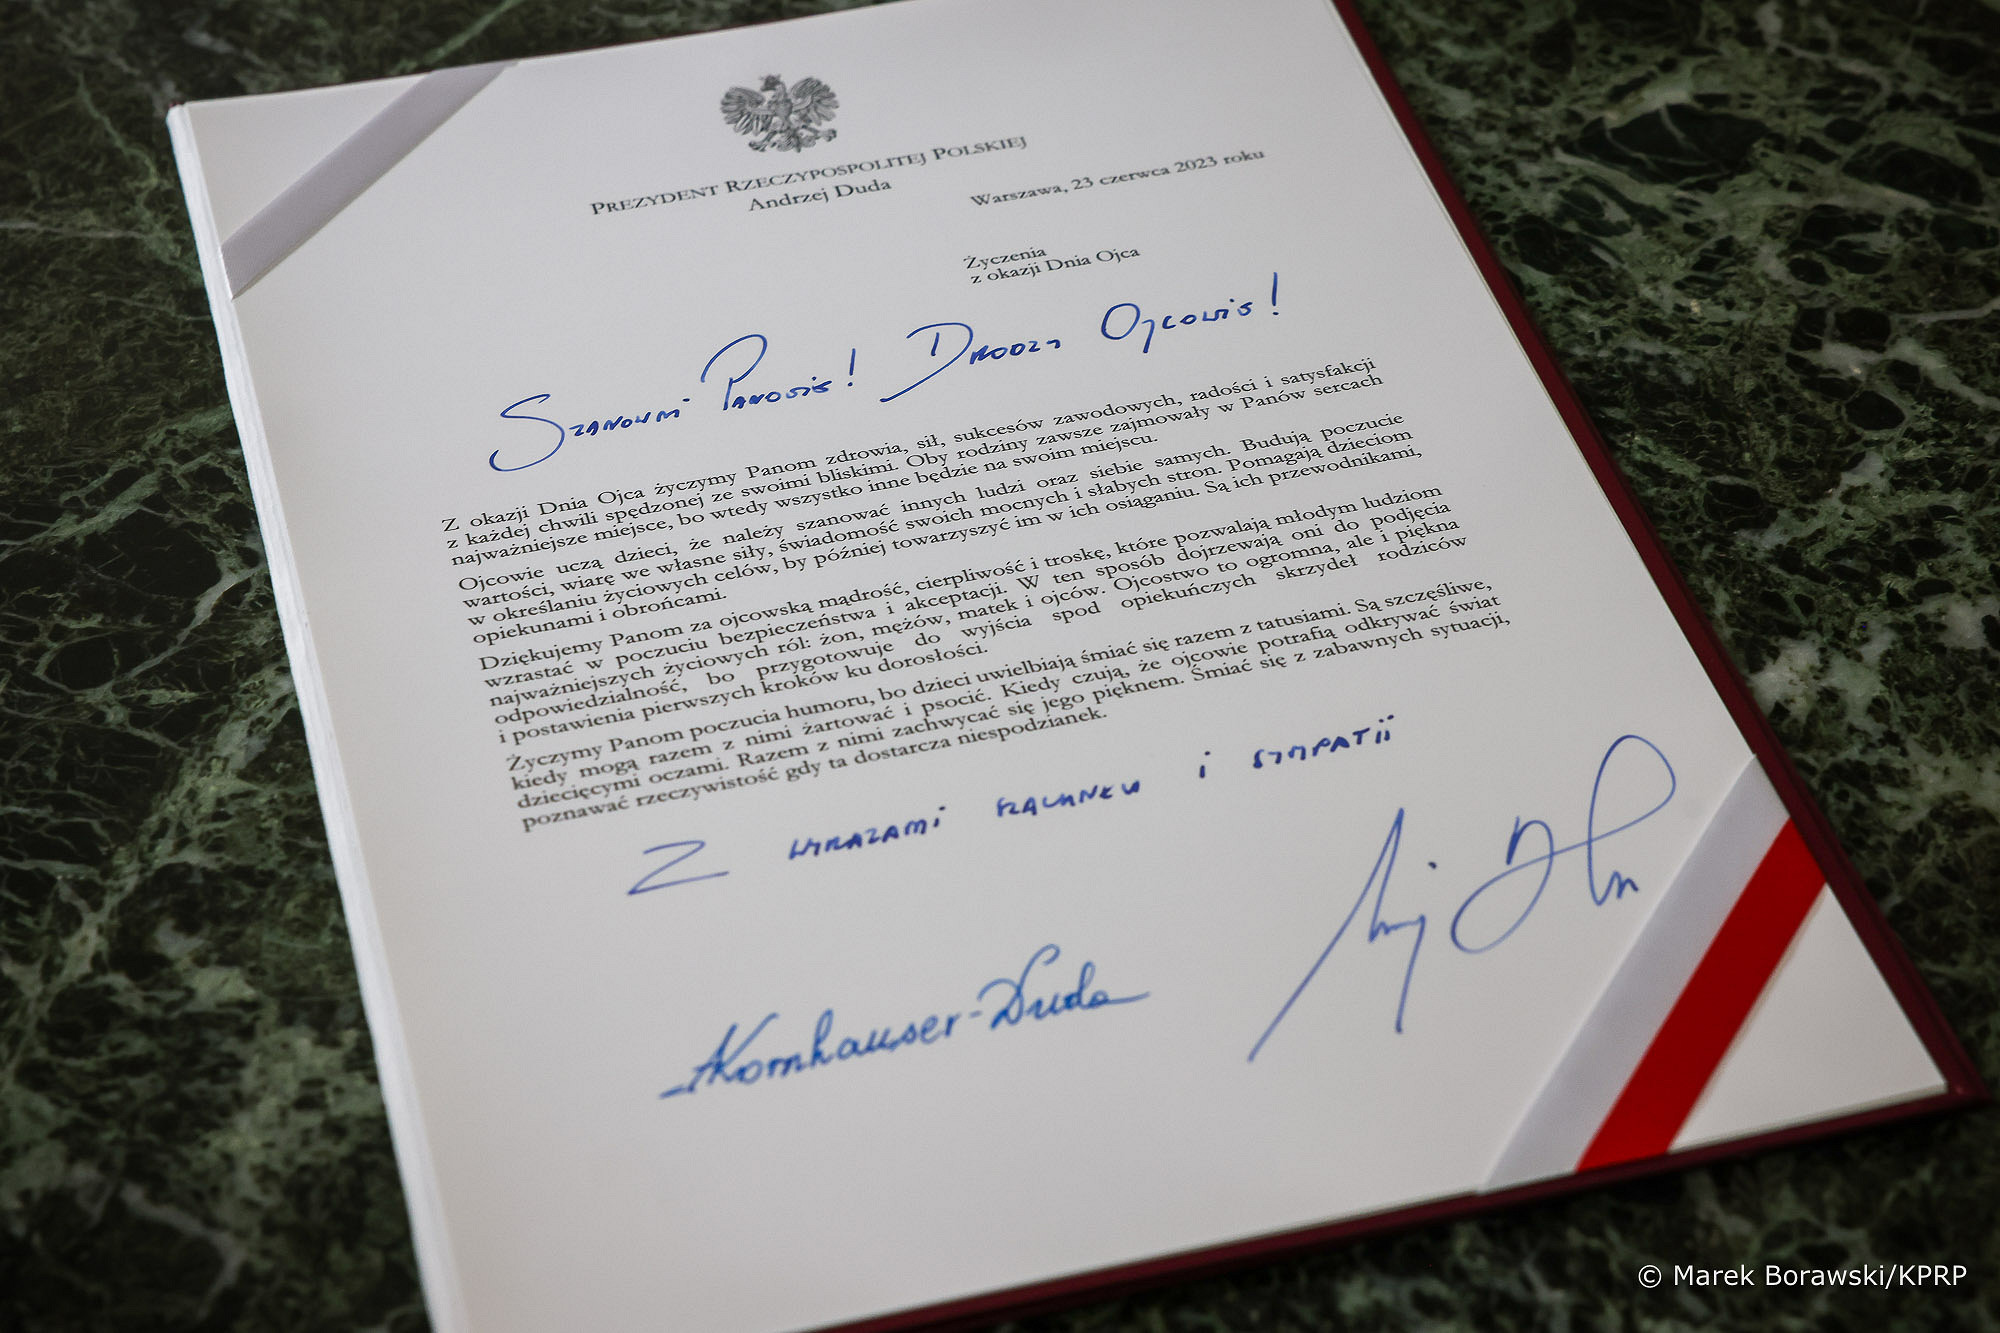 PREZYDENT RZECZYPOSPOLITEJ POLSKIEJ
Andrzej Duda
Warszawa, 23 czerwca 2023 roku
Życzenia
z okazji Dnia Ojca
Szanowni Panowie! Drodzy Ojcowie!
Z okazji Dnia Ojca życzymy Panom zdrowia, sił, sukcesów zawodowych, radości i satysfakcji
z każdej chwili spędzonej ze swoimi bliskimi. Oby rodziny zawsze zajmowały w Panów sercach
najważniejsze miejsce, bo wtedy wszystko inne będzie na swoim miejscu.
Ojcowie uczą dzieci, że należy szanować innych ludzi oraz siebie samych. Budują poczucie
wartości, wiarę we własne siły, świadomość swoich mocnych i słabych stron. Pomagają dzieciom
w określaniu życiowych celów, by później towarzyszyć im w ich osiąganiu. Są ich przewodnikami,
opiekunami i obrońcami.
Dziękujemy Panom za ojcowską mądrość, cierpliwość i troskę, które pozwalają młodym ludziom
wzrastać w poczuciu bezpieczeństwa i akceptacji. W ten sposób dojrzewają oni do podjęcia
najważniejszych życiowych ról: żon, mężów, matek i ojców. Ojcostwo to ogromna, ale i piękna
odpowiedzialność, bo przygotowuje do wyjścia spod opiekuńczych skrzydeł rodziców
i postawienia pierwszych kroków ku dorosłości.
Życzymy Panom poczucia humoru, bo dzieci uwielbiają śmiać się razem z tatusiami. Są szczęśliwe,
kiedy mogą razem z nimi żartować i psocić. Kiedy czują, że ojcowie potrafią odkrywać świat
dziecięcymi oczami. Razem z nimi zachwycać się jego pięknem. Śmiać się z zabawnych sytuacji,
poznawać rzeczywistość gdy ta dostarcza niespodzianek.
Z wyrazami szacunku i sympatii
AKornhauser-Duda
© Marek Borawski/KPRP